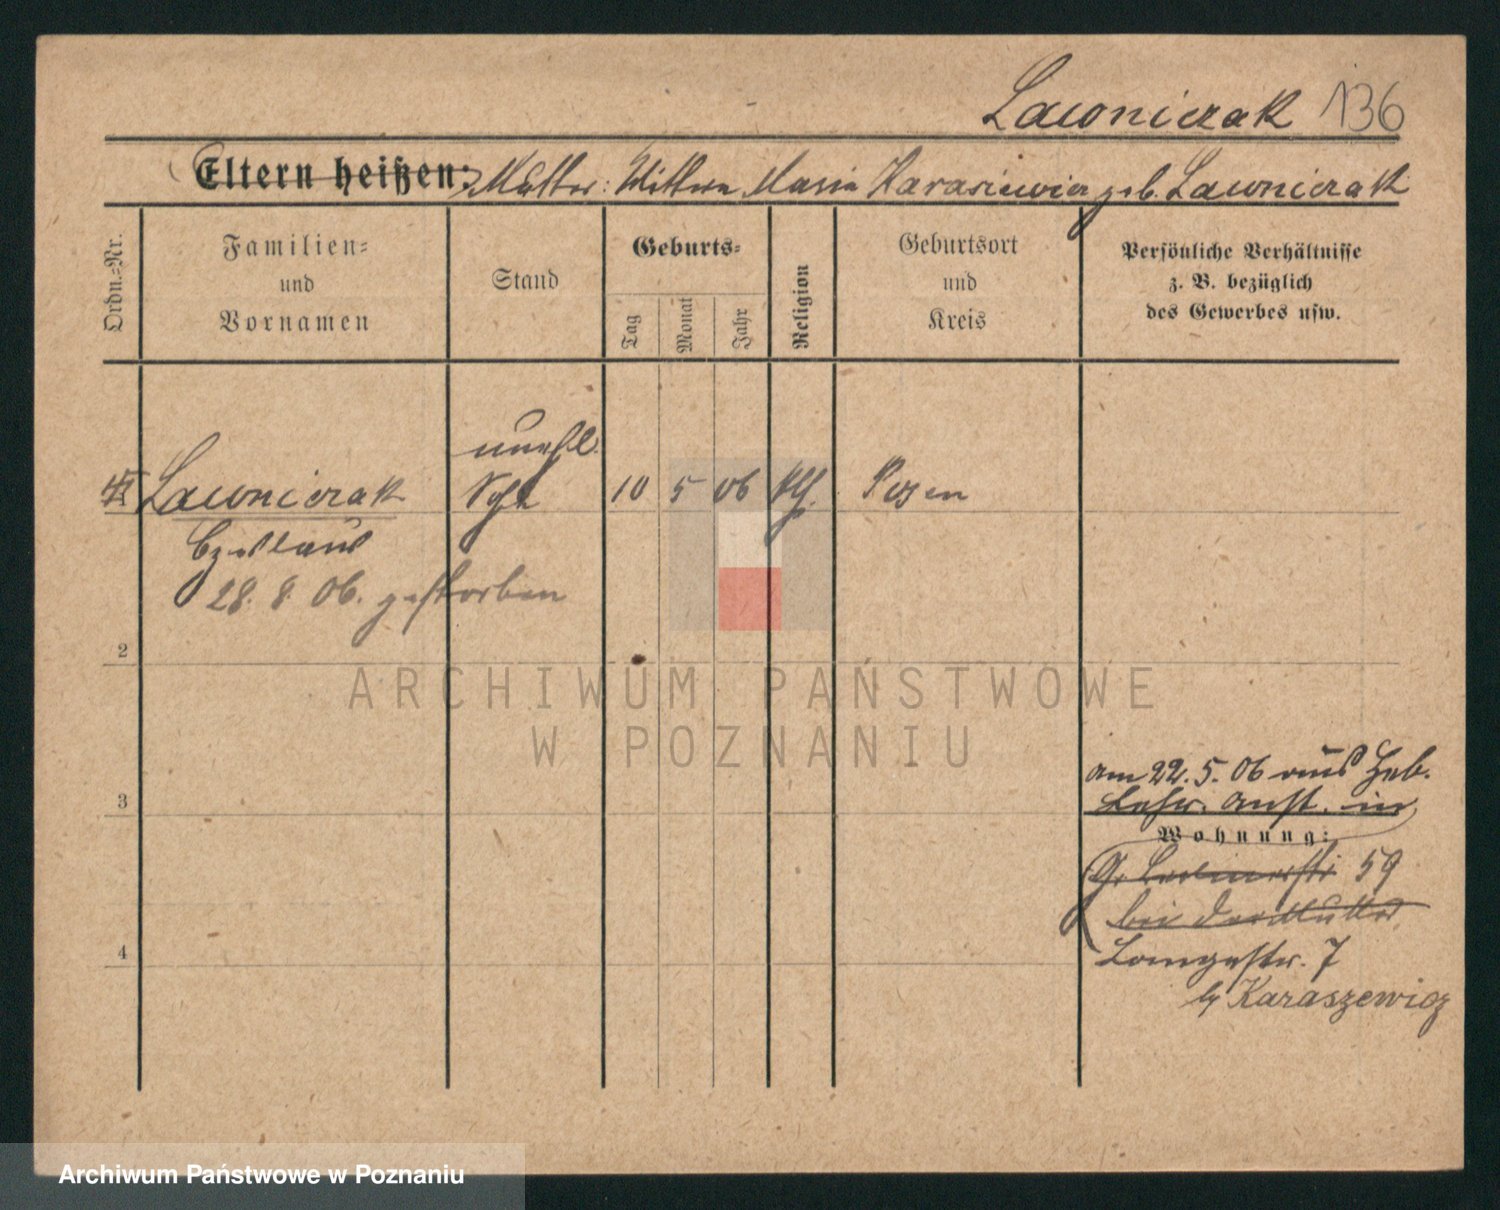 Lawniczak 136
Eltern heißen: Mutter: Wittwe Maria Karasiewicz geb. Lawniczak
Ordn.=Nr.
Familien=
und
Vornamen
Stand
Geburts=
Tag
Monat
Jahr
Religion
Geburtsort
und
Kreis
Persönliche Verhältnisse
z. B. bezüglich
des Gewerbes usw.
unehl.
Lawniczak
10 5 06 kth. Posen
Czeslaus
28. 8. 06. gestorben
2
ARCHIWUM PAŃSTWOWE
W POZNANIU
am 22. 5. 06 aus Heb.
3
Lehr. Anst. in
Wohnung:
59
bei der Mutter
4
Langestr. 7
by Karaszewicz
Archiwum Państwowe w Poznaniu